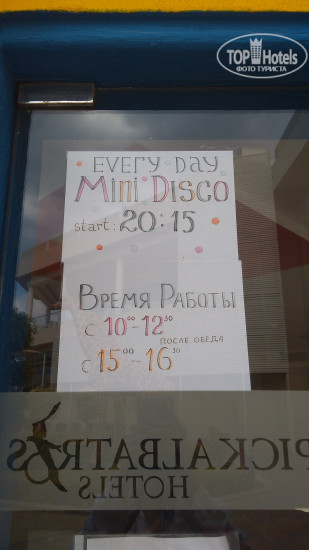 TOP Hotels
ФОТО ТУРИСТА
EVERY DAY
MINI DISCO
start: 20:15
ВРЕМЯ РАБОТЫ
с 10⁰⁰-12³⁰
ПОСЛЕ ОБЕДА
с 15⁰⁰-16³⁰
PICKALBATROS
HOTELS